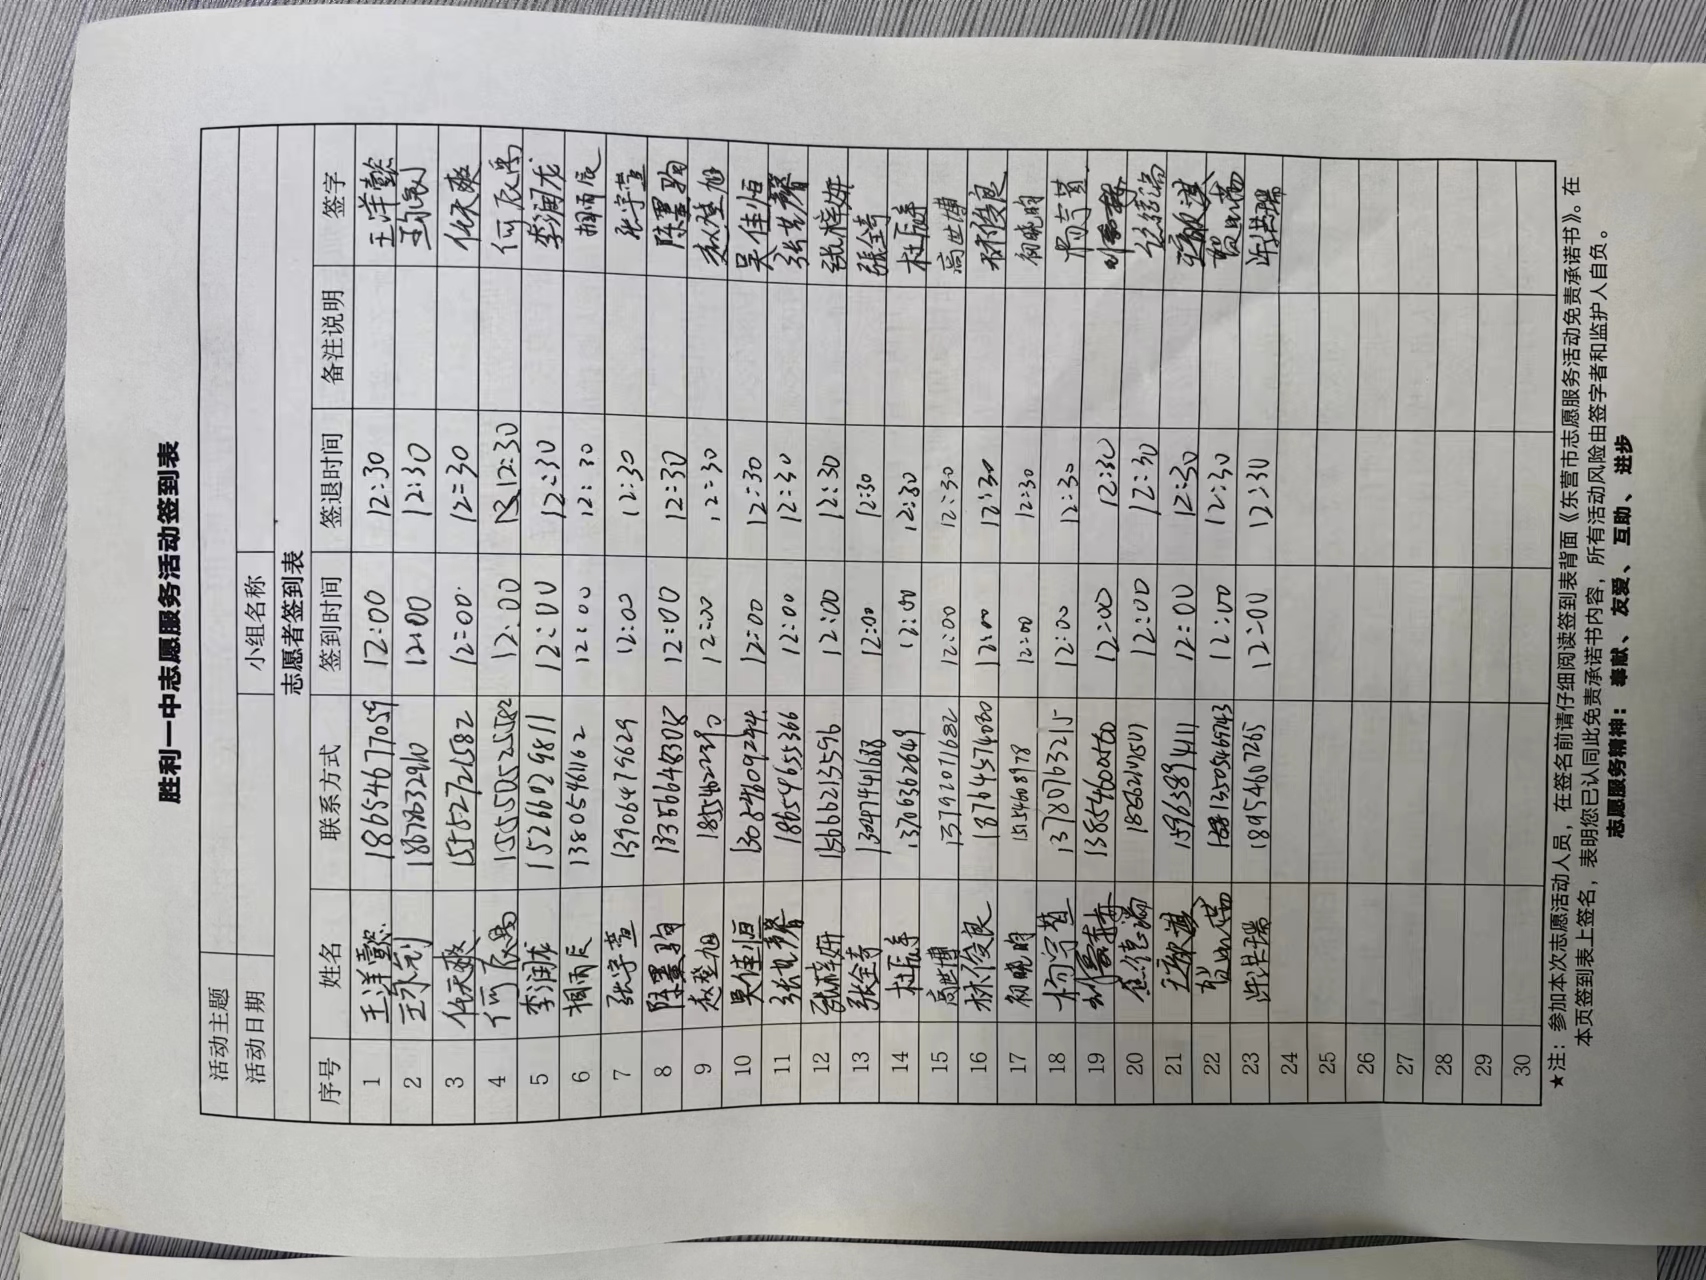 胜利一中志愿服务活动签到表
活动主题
活动日期 小组名称
志愿者签到表
序号 姓名 联系方式 签到时间 签退时间 备注说明 签字
1 王洋懿 18654677059 12:00 12:30 王洋懿
2 12:00 12:30
3 任天爽 15527271582 12:00 12:30 任天爽
4 何辰禺 15550525582 12:00 12:30 何辰禺
5 李润龙 15266029811 12:00 12:30 李润龙
6 13805461162 12:00 12:30
7 张宇萱 13906479629 12:00 12:30 张宇萱
8 陈墨驹 13356648308 12:00 12:30 陈墨驹
9 赵登旭 12:00 12:30 赵登旭
10 吴佳恒 13054609244 12:00 12:30 吴佳恒
11 张芸馨 18654655366 12:00 12:30 张芸馨
12 张梓妍 15666213596 12:00 12:30 张梓妍
13 张全奇 13047441688 12:00 12:30 张全奇
14 13706362649 12:00 12:30
15 高世博 13792071682 12:00 12:30 高世博
16 林俊良 18764574080 12:00 12:30 林俊良
17 初晓明 15154608978 12:00 12:30 初晓明
18 13780763215 12:00 12:30
19 13854600550 12:00 12:30
20 18562141501 12:00 12:30
21 15965891411 12:00 12:30
22 13505469743 12:00 12:30
23 许洪瑞 18954607265 12:00 12:30 许洪瑞
24
25
26
27
28
29
30
★注：参加本次志愿活动人员，在签名前请仔细阅读签到表背面《东营市志愿服务活动免责承诺书》。在
本页签到表上签名，表明您已认同此免责承诺书内容，所有活动风险由签字者和监护人自负。
志愿服务精神：奉献、友爱、互助、进步